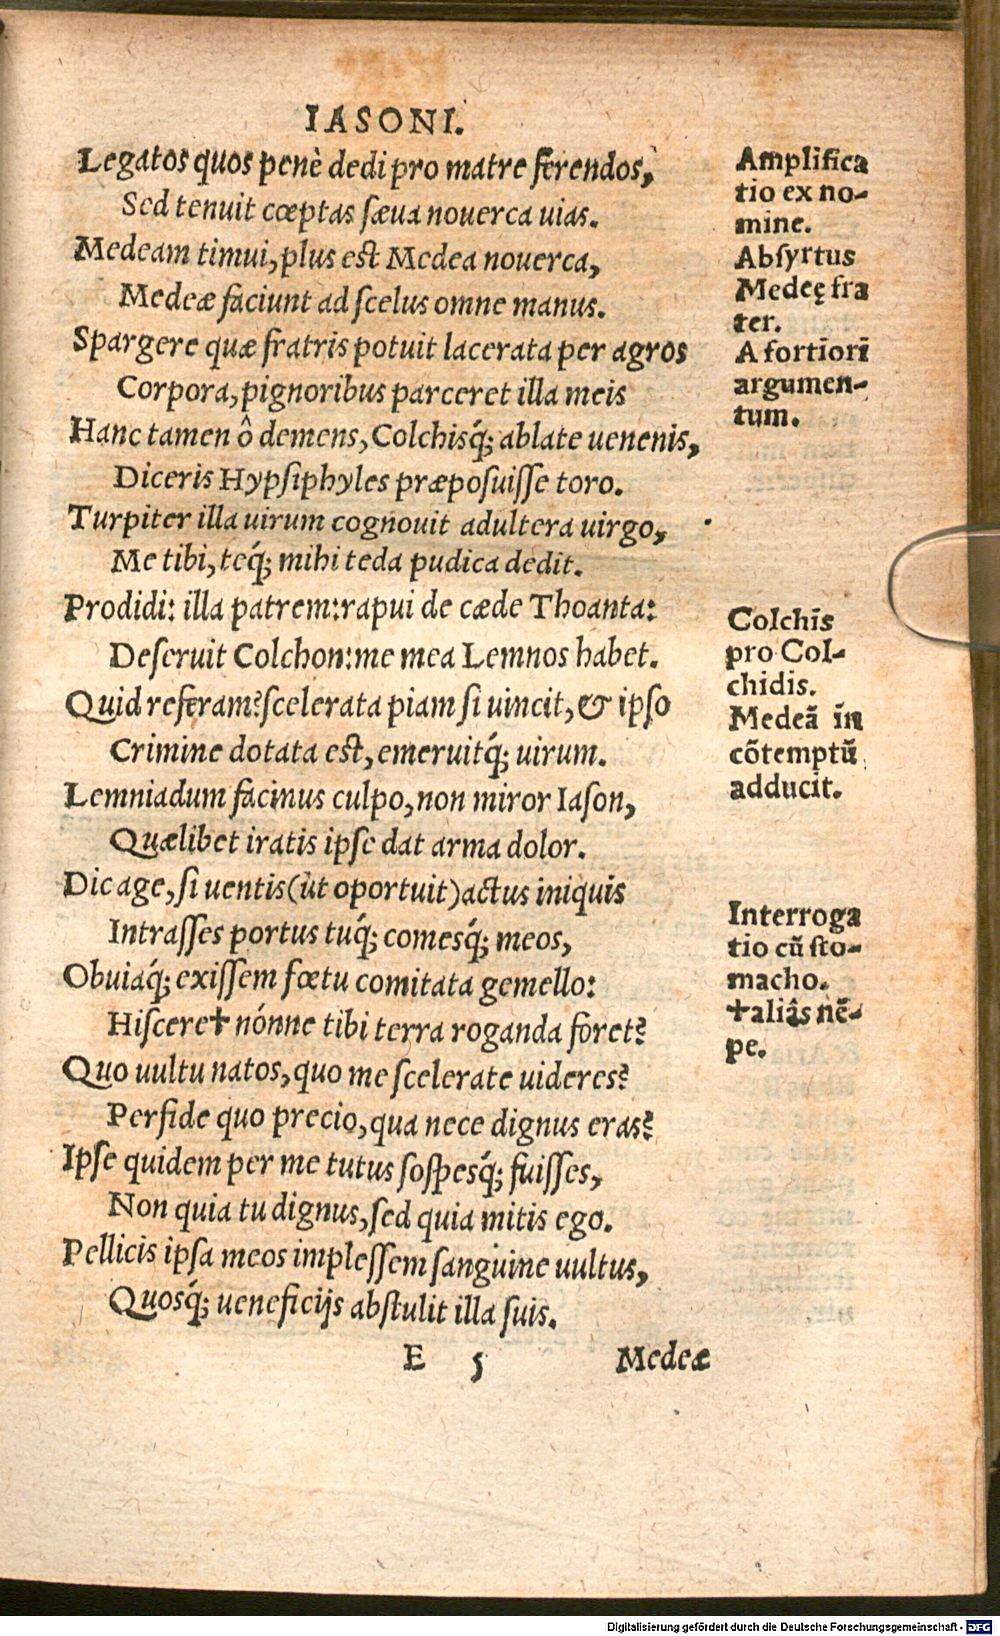 IASONI.
Legatos quos penè dedi pro matre ferendos,
Sed tenuit cœptas sæua nouerca uias.
Medeam timui, plus est Medea nouerca,
Medeæ faciunt ad scelus omne manus.
Spargere quæ fratris potuit lacerata per agros
Corpora, pignoribus parceret illa meis
Hanc tamen ô demens, Colchisq́; ablate uenenis,
Diceris Hypsiphyles præposuisse toro.
Turpiter illa uirum cognouit adultera uirgo,
Me tibi, teq́; mihi teda pudica dedit.
Prodidi: illa patrem: rapui de cæde Thoanta:
Deseruit Colchon: me mea Lemnos habet.
Quid referam? scelerata piam si uincit, & ipso
Crimine dotata est, emeruitq́; uirum.
Lemniadum facinus culpo, non miror Iason,
Quælibet iratis ipse dat arma dolor.
Dic age, si uentis (ut oportuit) actus iniquis
Intrasses portus tuq́; comesq́; meos,
Obuiaq́; exissem fœtu comitata gemello:
Hiscere✝ nónne tibi terra roganda foret?
Quo uultu natos, quo me scelerate uideres?
Perfide quo precio, qua nece dignus eras?
Ipse quidem per me tutus sospesq́; fuisses,
Non quia tu dignus, sed quia mitis ego.
Pellicis ipsa meos implessem sanguine uultus,
Quosq́; ueneficijs abstulit illa suis.
E 5 Medeæ
Amplifica
tio ex no-
mine.
Absyrtus
Medeę fra
ter.
A fortiori
argumen-
tum.
Colchis
pro Col-
chidis.
Medeã in
cõtemptũ
adducit.
Interroga
tio cũ sto-
macho.
✝aliâs nẽ-
pe.
Digitalisierung gefördert durch die Deutsche Forschungsgemeinschaft - DFG